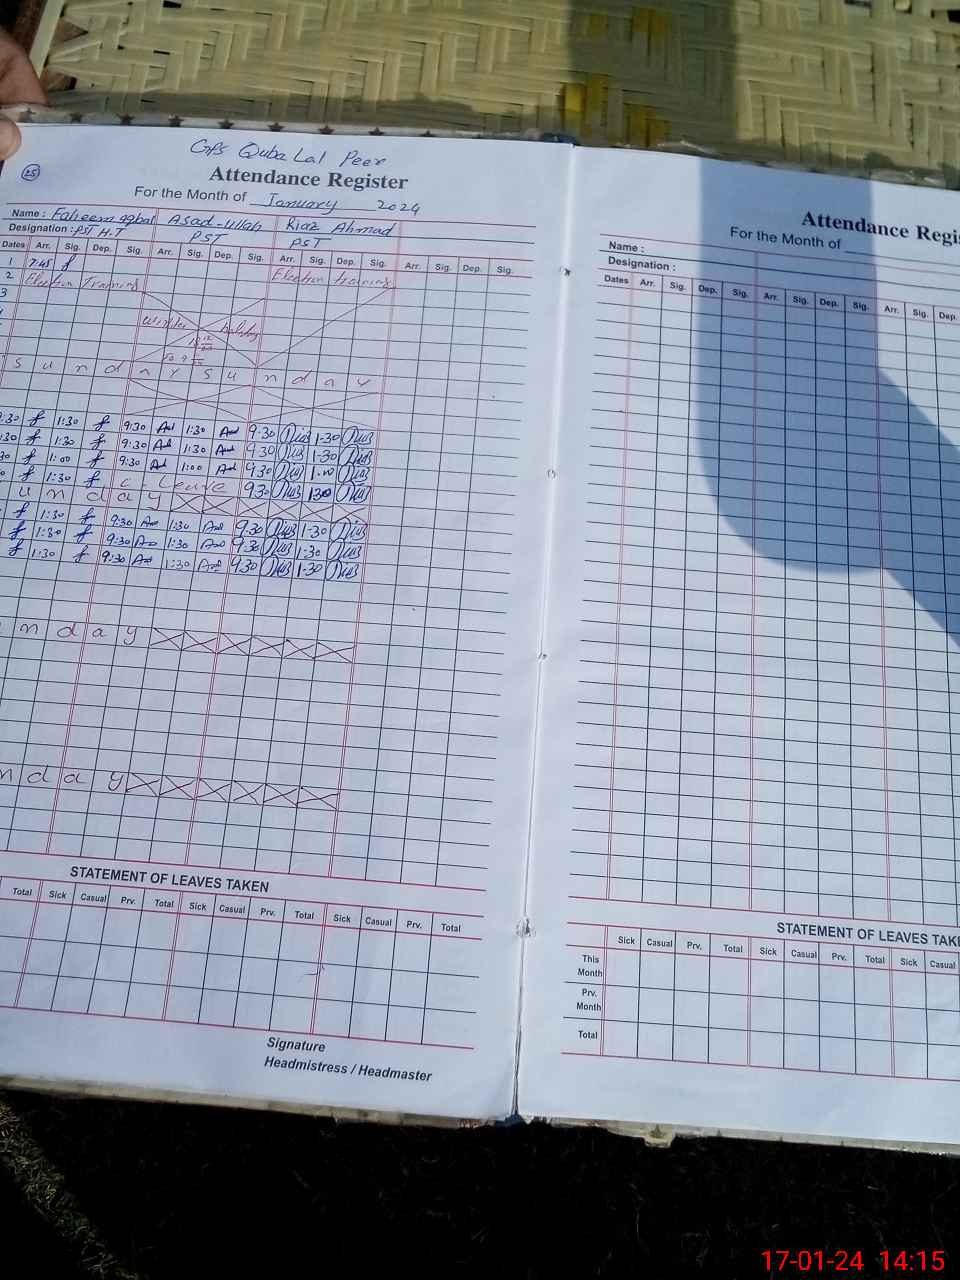 GPS Quba Lal Peer
25
Attendance Register
For the Month of January 2024
Name : Faheem iqbal Asad-ullah Riaz Ahmad
Designation : PST H.T PST PST
Dates Arr. Sig. Dep. Sig. Arr. Sig. Dep. Sig. Arr. Sig. Dep. Sig. Arr. Sig. Dep. Sig.
1 7:45 Election training
2 Election Training
3
Winter holiday
S u n d a y S u n d a y
:30 1:30 9:30 1:30 9:30 1-30
:30 1:30 9:30 1:30 9:30 1-30
1:00 9:30 1:00 9:30 1-00
1:30 C. Leave 9:30 1:30
u n d a y
1:30 9:30 1:30 9:30 1-30
1:30 9:30 1:30 9:30 1-30
1:30 9:30 1:30 9:30 1-30
n d a y
n d a y
STATEMENT OF LEAVES TAKEN
Total Sick Casual Prv. Total Sick Casual Prv. Total Sick Casual Prv. Total
Signature
Headmistress / Headmaster
Attendance Regis
For the Month of
Name :
Designation :
Dates Arr. Sig. Dep. Sig. Arr. Sig. Dep. Sig. Arr. Sig. Dep.
STATEMENT OF LEAVES TAKE
Sick Casual Prv. Total Sick Casual Prv. Total Sick Casual
This Month
Prv. Month
Total
17-01-24 14:15